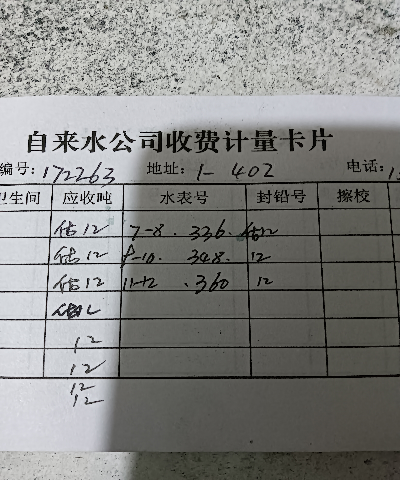 自来水公司收费计量卡片
编号: 172263 地址: 1-402 电话:
卫生间 应收吨 水表号 封铅号 擦校
估12 7-8. 336. 估12
估12 9-10. 348. 12
估12 11-12 .360 12
估12
12
12
12
12